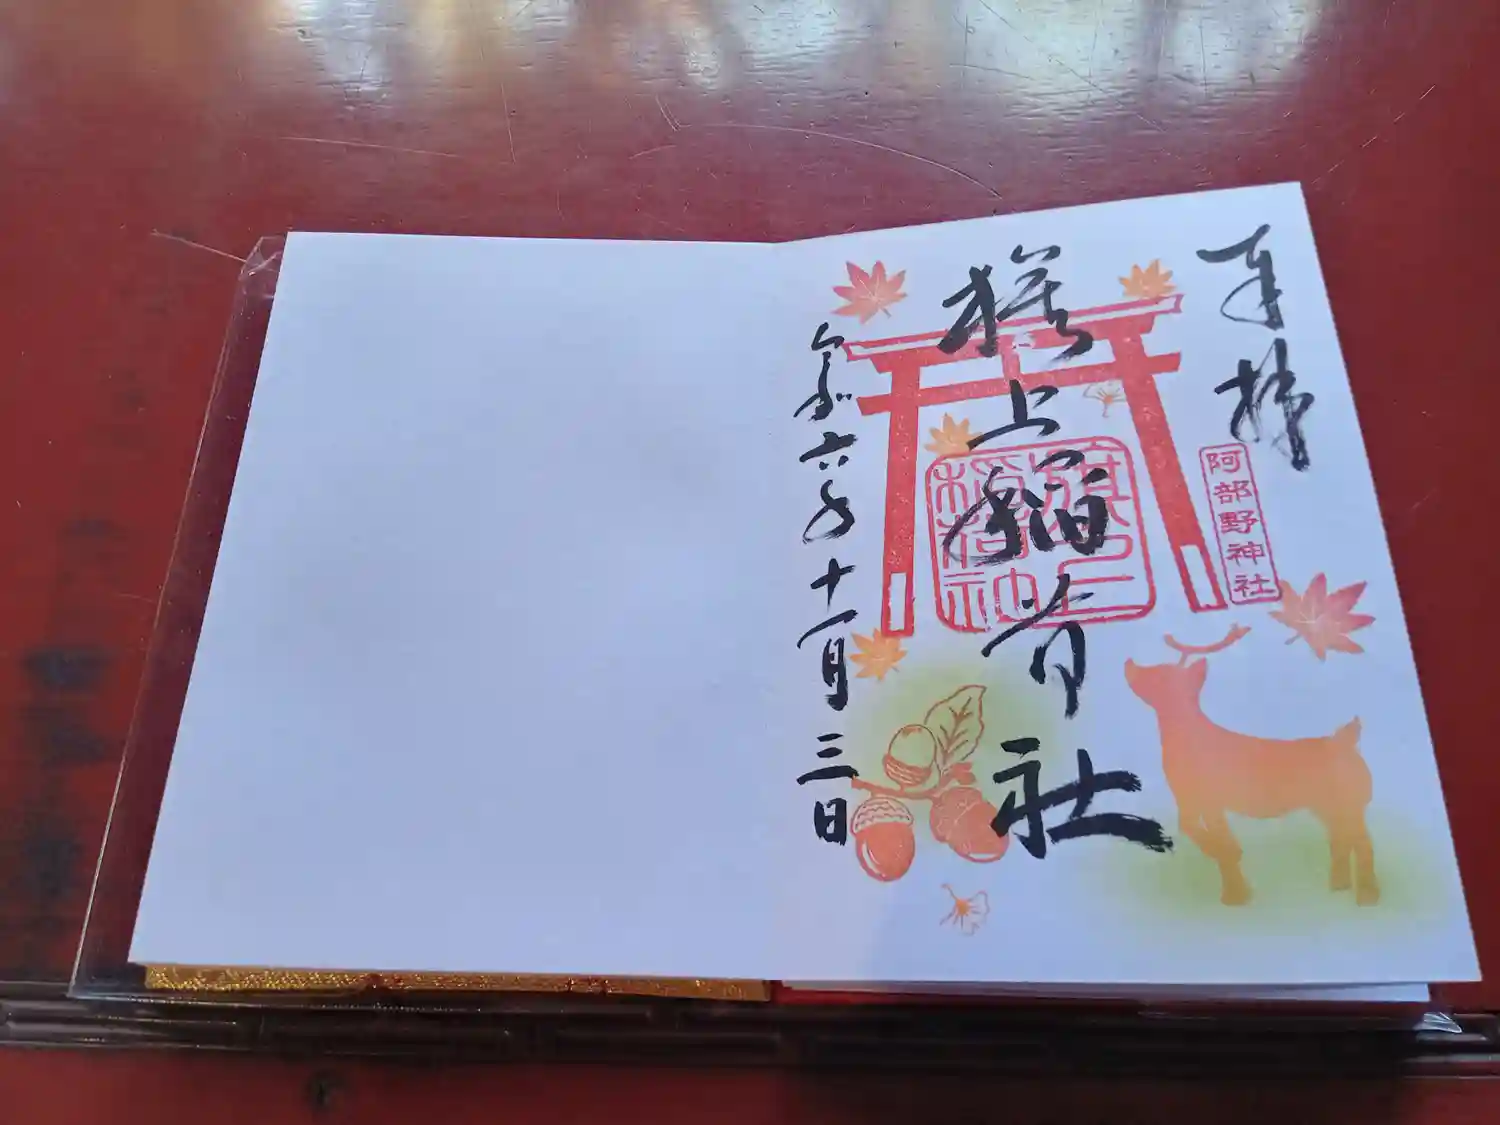 奉拝
阿部野神社
旗上稲荷社
令和六年十一月三日